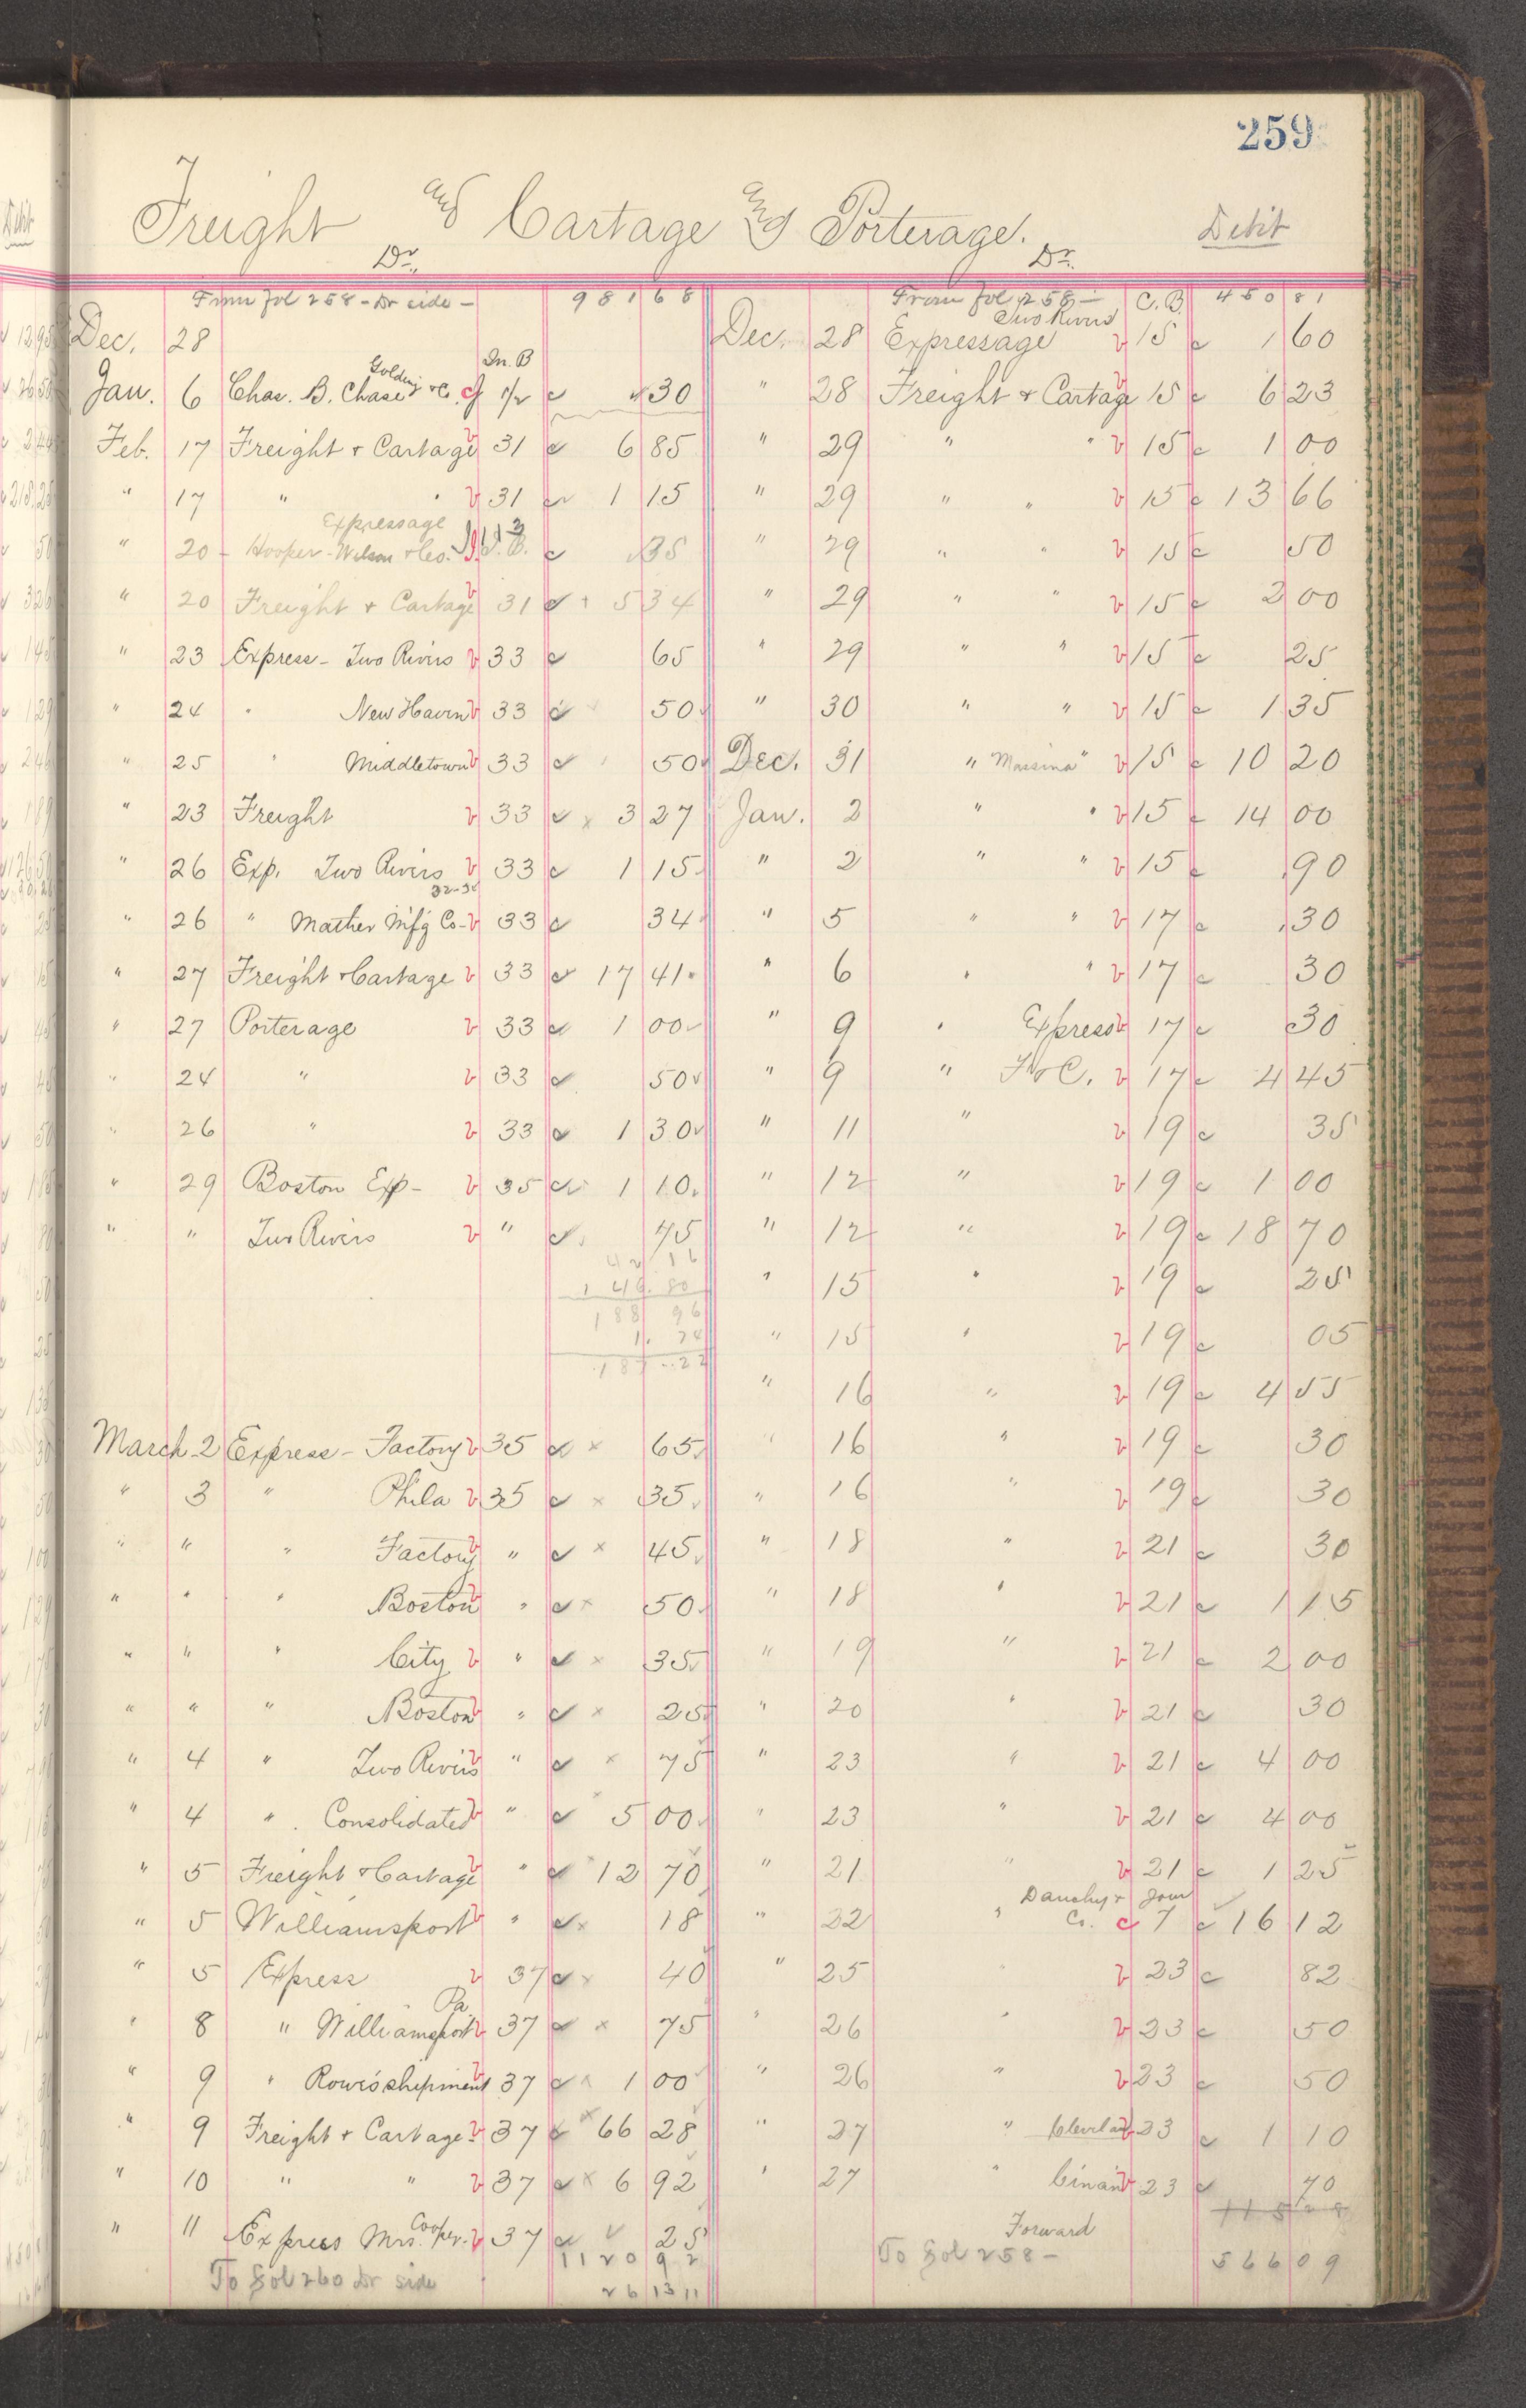 259
Freight and Cartage and Porterage.
Debit
Dr. Dr.
From fol 258 - Dr side - 981 68
Dec. 28
Golding In. B
Jan. 6 Chas. B. Chase & Co. 1/2 30
Feb. 17 Freight & Cartage v 31 6 85
" 17 " " v 31 1 15
Expressage
" 20 - Hooper - Wilson & Co. 35
" 20 Freight & Cartage v 31 5 34
" 23 Express - Two Rivers v 33 65
" 24 " New Haven v 33 50
" 25 " Middletown v 33 50
" 23 Freight v 33 x 3 27
" 26 Exp. Two Rivers v 33 1 15
" 26 " Mather Mfg Co - v 33 34
" 27 Freight & Cartage v 33 17 41
" 27 Porterage v 33 1 00
" 24 " v 33 50
" 26 " v 33 1 30
" 29 Boston Exp - v 35 1 10
" " Two Rivers v " 45
42 16
1 46.80
188 96
1. 74
187 . 22
March 2 Express - Factory v 35 x 65
" 3 " Phila v 35 x 35
" " " Factory v " x 45
" " " Boston v " x 50
" " " City v " x 35
" " " Boston v " x 25
" 4 " Two Rivers v " x 75
" 4 " Consolidated v " x 5 00
" 5 Freight & Cartage v " x 12 70
" 5 Williamsport v " x 18
" 5 Express v 37 x 40
Pa
" 8 " Williamsport v 37 x 75
" 9 " Rowe's shipment v 37 x 1 00
" 9 Freight & Cartage - v 37 x 66 28
" 10 " " v 37 x 6 92
" 11 Express Mrs. Cooper. v 37 25
1120 92
To fol 260 Dr side 26 13 11
From fol 258 - C.B. 450 81
Two Rivers
Dec. 28 Expressage v 15 1 60
" 28 Freight & Cartage v 15 6 23
" 29 " " v 15 1 00
" 29 " " v 15 13 66
" 29 " " v 15 50
" 29 " " v 15 2 00
" 29 " " v 15 25
" 30 " " v 15 1 35
Dec. 31 " "Massina" v 15 10 20
Jan. 2 " " v 15 14 00
" 2 " " v 15 90
" 5 " " v 17 30
" 6 " " v 17 30
" 9 " Express v 17 30
" 9 " F & C. v 17 4 45
" 11 " v 19 35
" 12 " v 19 1 00
" 12 " v 19 18 70
" 15 " v 19 25
" 15 " v 19 05
" 16 " v 19 4 55
" 16 " v 19 30
" 16 " v 19 30
" 18 " v 21 30
" 18 " v 21 1 15
" 19 " v 21 2 00
" 20 " v 21 30
" 23 " v 21 4 00
" 23 " v 21 4 00
" 21 " v 21 1 25
Dauchy & Jour
" 22 " Co. c 7 16 12
" 25 " v 23 82
" 26 " v 23 50
" 26 " v 23 50
" 27 " Cleveland v 23 1 10
" 27 " Cinan v 23 70
Forward
To fol 258 - 566 09